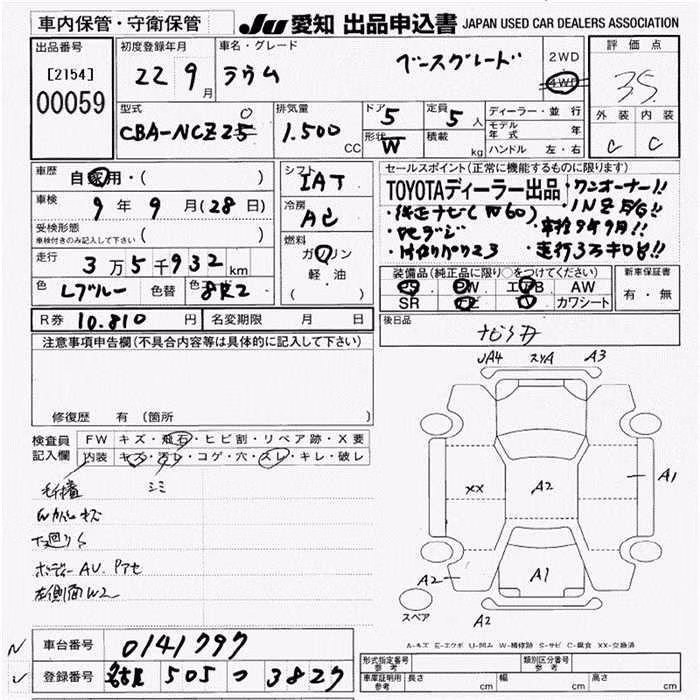 車内保管・守衛保管
JU 愛知 出品申込書 JAPAN USED CAR DEALERS ASSOCIATION
出品番号
[2154]
00059
初度登録年月
22 9 月
車名・グレード
ラウム ベースグレード
2WD
4WD
評価点
35
外装 内装
C C
型式
CBA-NCZ25
0
排気量
1.500 CC
ドア 5
形状 W
定員 5 人
積載 kg
ディーラー・並行
モデル年式 年
ハンドル 左・右
車歴
自家用・( )
車検
9 年 9 月(28 日)
受検形態
車検付きのみ記入して下さい ( )
走行
3 万 5 千 932 km
色 Lブルー 色替 8R2
シフト
IAT
冷房
AC
燃料
ガソリン
軽油
( )
セールスポイント(正常に機能するものに限ります)
TOYOTAディーラー出品 ・ワンオーナー!!
・純正ナビ(W60)
・地デジ ・車検9年9月!!
・走行3万キロ台!!
装備品(純正品に限り○をつけてください)
PS PW エアB AW
SR ナビ TV カワシート
新車保証書
有・無
R券 10.810 円 名変期限 月 日
後日品
注意事項申告欄(不具合内容等は具体的に記入して下さい)
修復歴 有 (箇所
検査員記入欄
FW キズ・飛石・ヒビ割・リペア跡・X要
内装 キズ・汚レ・コゲ・穴・スレ・キレ・破レ
シミ
下廻りS
ボディーAU. Pアセ
左側面W2
UA4 A3
A1
XX A2
A2 A1
スペア A2
A-キズ E-エクボ U-凹み W-補修跡 S-サビ C-腐食 XX-交換済
車台番号 0141797
登録番号 名古屋 505 つ 3827
形式指定番号 参考
類別区分番号 参考
車庫証明用 参考 長さ cm 幅 cm 高さ cm